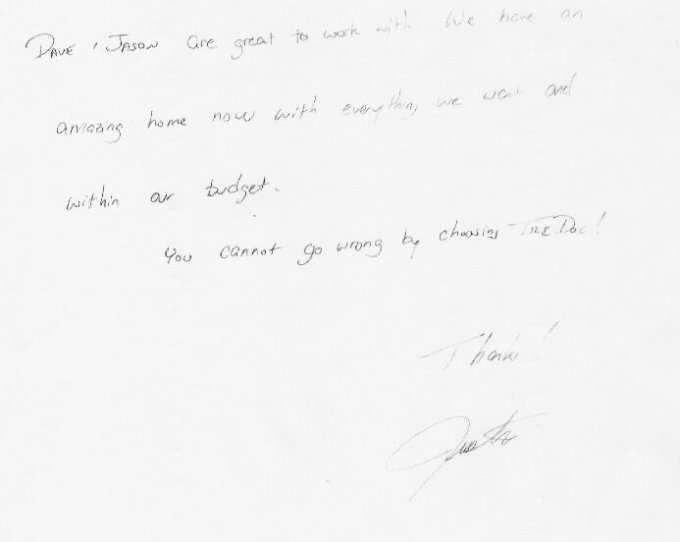 DAVE & JASON are great to work with We have an
amazing home now with everything we want and
within our budget.
You cannot go wrong by choosing TREDOC!
Thanks!